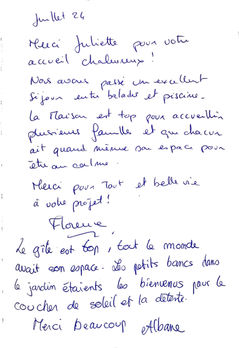 Juillet 24
Merci Juliette pour votre
accueil chaleureux !
Nous avons passé un excellent
séjour entre balades et piscine.
La Maison est top pour accueillir
plusieures familles et que chacun
ait quand même son espace pour
être au calme.
Merci pour Tout et belle vie
à votre projet !
Florence
Le gîte est top, tout le monde
avait son espace. Les petits bancs dans
le jardin étaients les bienvenus pour le
coucher de soleil et la détente.
Merci Beaucoup Albane